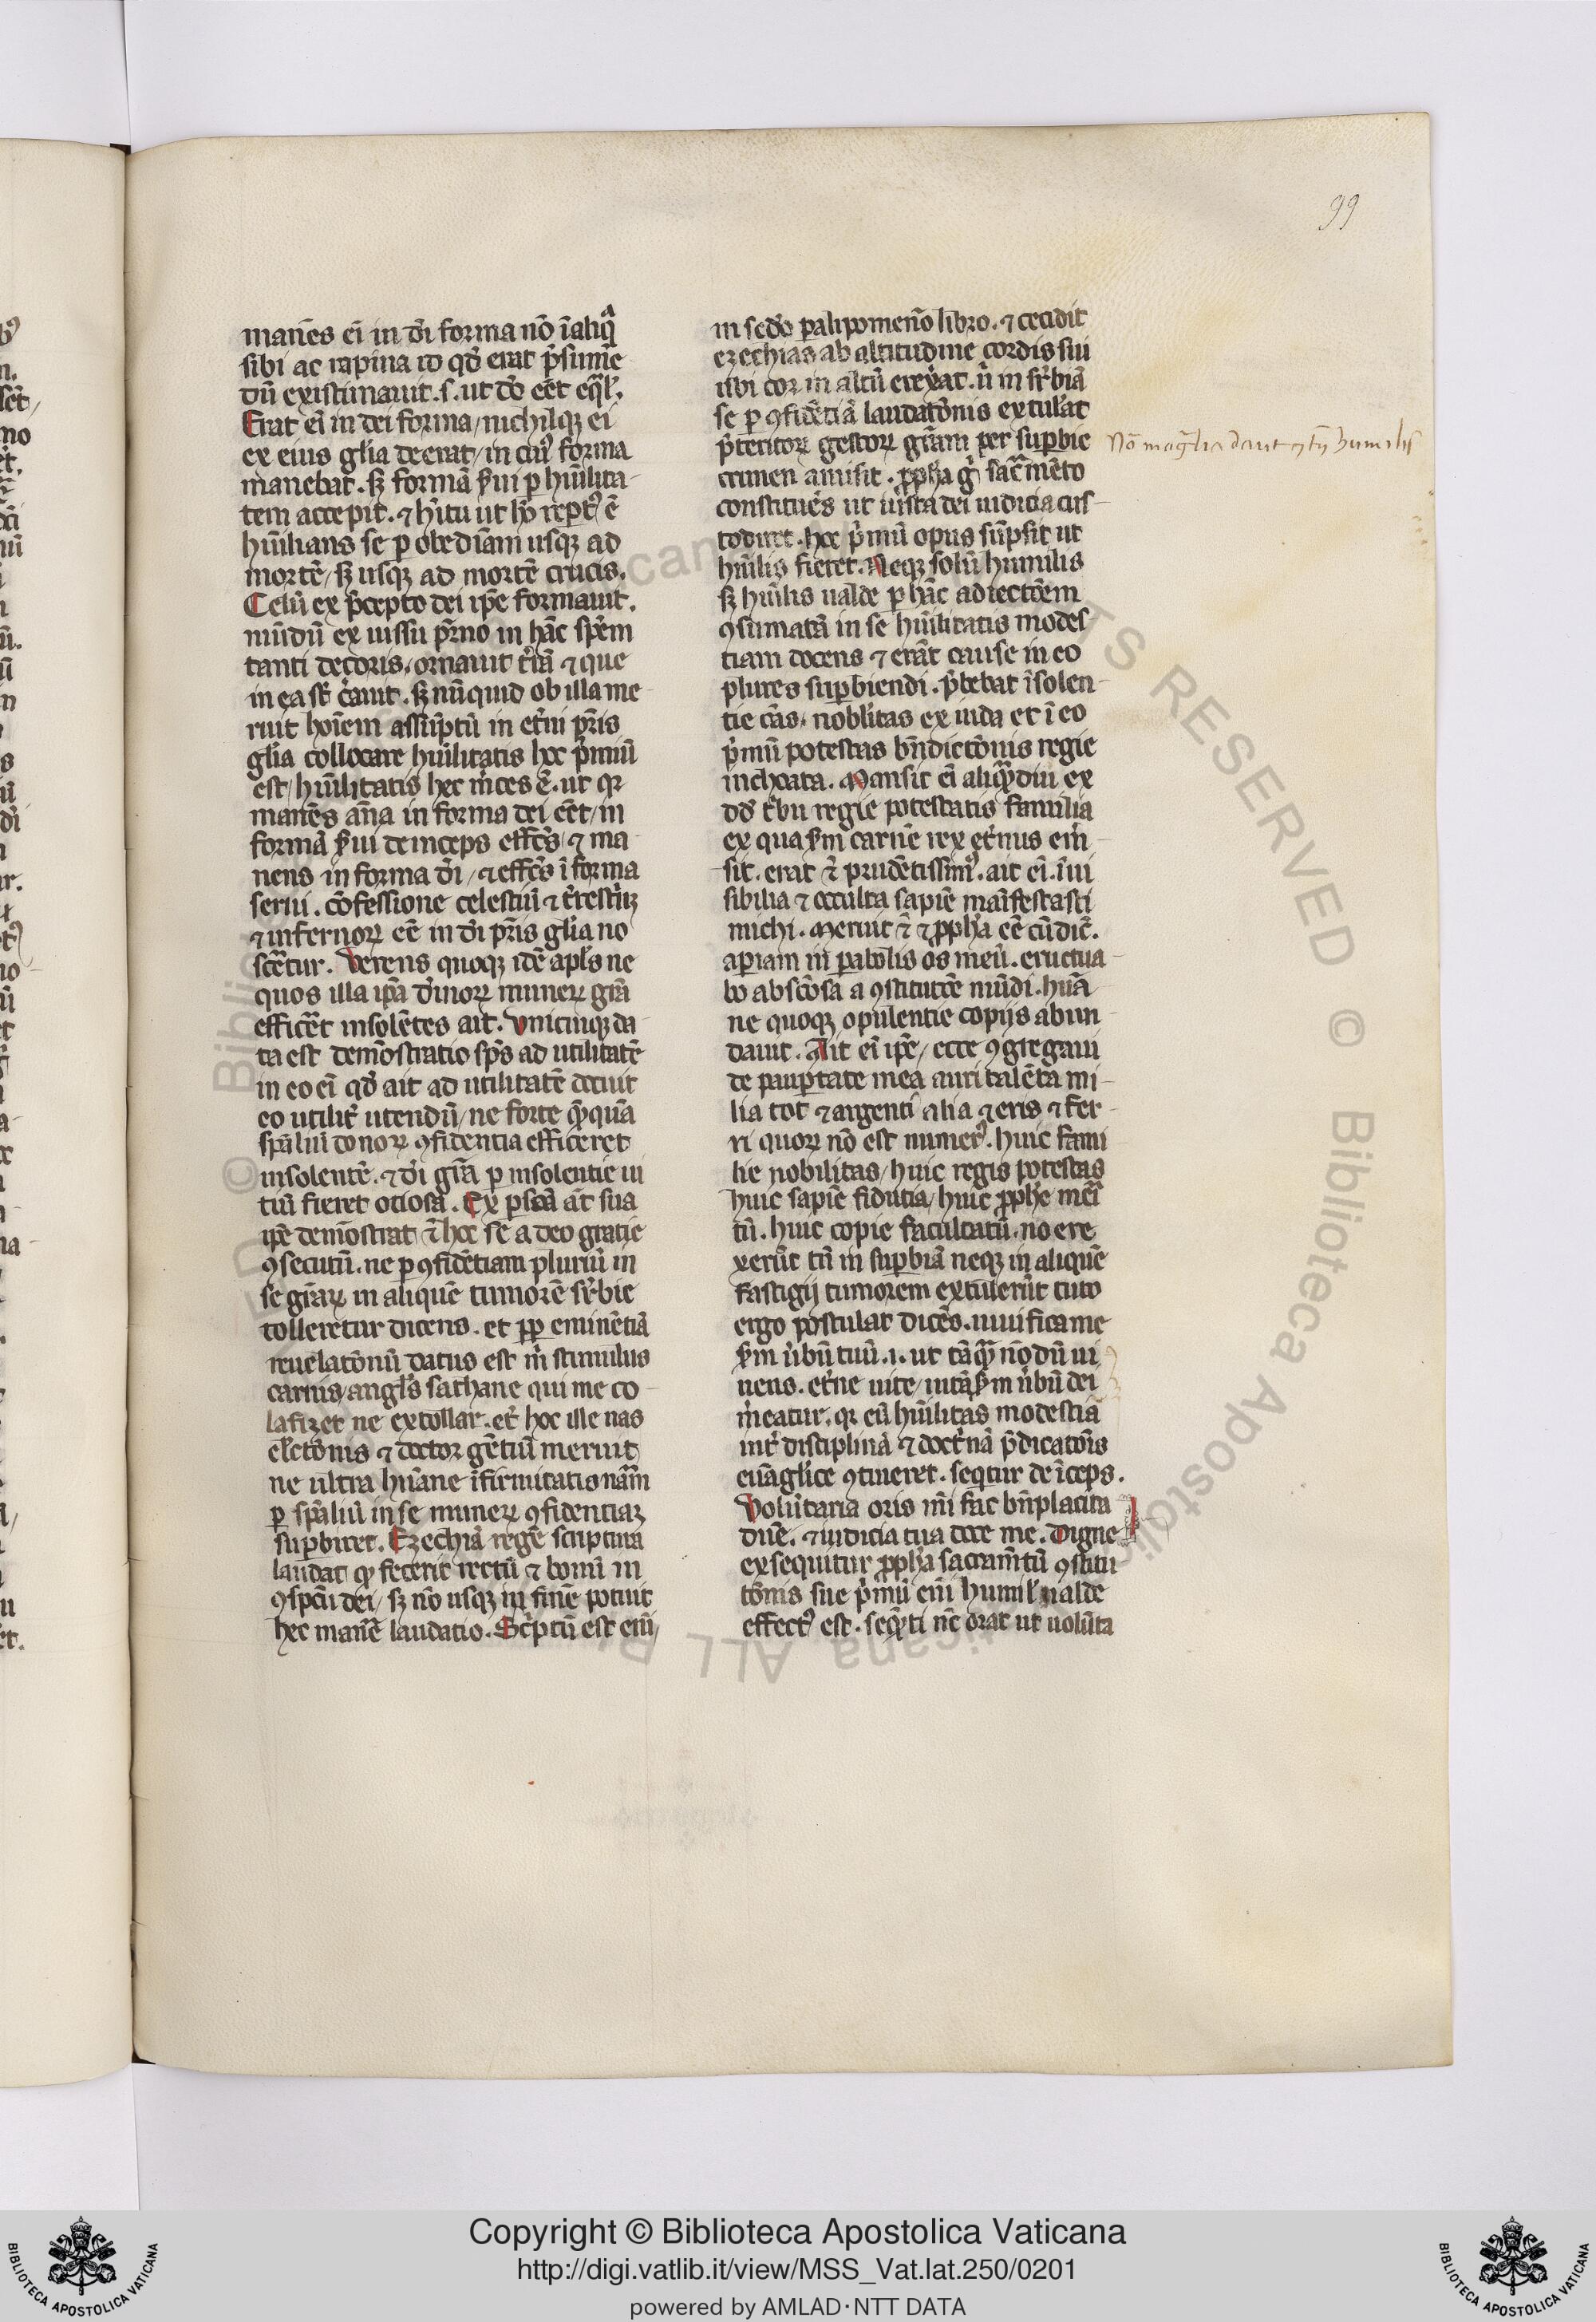 99
manēs ei̅ in d̅i forma nō ī aliq̄
sibi ac rapina id qd̓ erat p̄sumē
dū existimauit .s. ut dō eēt eq̄l̓.
Erat ei̅ in dei forma / nichilqꝫ ei
ex eius gl̓ia deerat / in cui᷒ forma
manebat . sꝫ formā ẜui ꝑ hūilita
tem accepit . ⁊ h̓itu ut hō reꝑt᷒ ē
hūilians se ꝑ obediam usqꝫ ad
mortē / sꝫ usqꝫ ad mortē crucis.
Celū ex p̄cepto dei ip̄e formauit.
mūdū ex iussu pr̄no in hāc spēm
tanti decoris . ornauit t̓rā ⁊ que
in ea st̄ c̓auit . sꝫ nūquid ob illa me
ruit hoīem assūptū in et̓ni pr̄is
gl̓ia collocare hūilitatis hec p̓miū
est / hūilitatis hec m̓ces ē . ut qr
manēs an̄a in forma dei eēt / in
formā ẜui deinceps effēs ⁊ ma
nens in forma d̅i / ⁊ effēs ī forma
serui . cōfessione celestiū ⁊ t̓rest̓iū
⁊ infernoꝝ eē in d̅i pr̄is gl̓ia no
scēetur . Verens quoqꝫ idē apl̓s ne
quos illa ip̄a d̓inoꝝ muneꝝ grā
efficēt insolētes ait . Vnicuiqꝫ da
ta est demōstratio sp̄s ad utilitatē
in eo ei̅ qd̓ ait ad utilitatē docuit
eo utilit̓ utendū / ne forte qūquā
sp̄aliū donoꝝ ꝯfidentia efficeret
insolentē . ⁊ d̅i grā ꝑ insolentie ui
tiū fieret otiosa . Ex ꝑsōa āt sua
ip̄e demōstrat hec se a deo gratie
ꝯsecutū . ne ꝑ ꝯfidētiam pluriū in
se grāꝝ in aliquē tumorē sꝑbie
tolleretur dicens . et ꝓp̄ eminētiā
reuelatōnū datus est m̓ stimulus
carnis / angl̓s sathane qui me co
lafizet ne extollar . et hoc ille uas
el̓ctōnis ⁊ doctor gētiū meruit
ne ultra hūane īfirmitatis nām
ꝑ sp̄aliū in se muneꝝ ꝯfidentiaꝫ
suꝑbiret . Ezechiā regē scriptura
laudat qꝫ fecerit rectū ⁊ bonū in
ꝯspc̄u dei / sꝫ nō usqꝫ in finē potuit
hec manē laudatio . Sc̓ptū est ei̅
in sedō palipomenō libro . ⁊ cecidit
ezechias ab altitudine cordis sui
ubi cor in altū erex̓at . ū in sꝑbiā
se ꝑ ꝯfidētiā laudatōnis extul̓at
p̄teritoꝝ gestoꝝ grām per suꝑbie
crimen amisit . ꝓph̓a g̓ sac̄mēto
constituēs ut iusta dei iudicia cus
todiret . hoc p̓mū opus sūpsit ut
hūilis fieret . Neqꝫ solū humilis
sꝫ hūilis ualde ꝑ hāc adiectōem
ꝯsumatā in se hūilitatis modes
tiam docens ⁊ erāt cause in eo
plures suꝑbiendi . p̄bebat īsolen
tie cās . nobl̓itas ex iuda et ī eo
p̓mū potestas bn̄dictōnis regie
inchoata . Mansit ei̅ aliqūdiu ex
t̓bu regie potestatis familia
ex qua ẜm carnē rex et̓nus em̓
sit . erat prudētissim᷒ . ait ei̅ . īui
sibilia ⁊ occulta sapiē manīfestasti
michi . Meruit ⁊ ꝓph̓a eē cū dic̄.
aꝑiam in ꝑabolis os meū . eructua
bo abscōsa a ꝯstitutōe mūdi . hūa
ne quoqꝫ opulentie copijs abun
dauit . Ait ei̅ ip̄e / ecce ꝯgregaui
de pauꝑtate mea auri talēta mi
lia tot ⁊ argenti alia ⁊ eris ⁊ fer
ri quoꝝ nō est numer᷒ . huic fami
lie nobilitas / huic regis potestas
huic sapiē fiducia / huic ꝓph̓e mer̄i
tū . huic copie facultatū . nō ere
xerūt tn̄ in suꝑbiā neqꝫ in aliquē
fastigij tumorem extulerūt tuto
ergo postulat dicēs . uiuifica me
ẜm ūbū tuū .i. ut tāqūm nōdū ui
uens . et̓ne uite / uitā ẜm ūbū dei
m̓eatur . qr eū hūilitas modestia
int̓ disciplinā ⁊ doct̓nā p̄dicatōis
euāglice ꝯtineret . seqtur deīceps.
Volūtaria oris m̅i fac bn̄placita
dn̄e . ⁊ iudicia tua doce me . Digne
exsequitur ꝓph̓a sacram̄tū ꝯstitu
tōnis sue p̓mū ei̅ humil̓ ualde
effect᷒ est . seq̄ti nc̄ orat ut uolūta
Nō magl̓ia dauit ꝯ tn̄ humilis
Copyright © Biblioteca Apostolica Vaticana
http://digi.vatlib.it/view/MSS_Vat.lat.250/0201
powered by AMLAD·NTT DATA
BIBLIOTECA APOSTOLICA VATICANA
BIBLIOTECA APOSTOLICA VATICANA